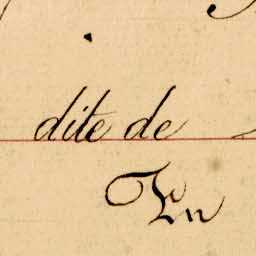 dite de
En